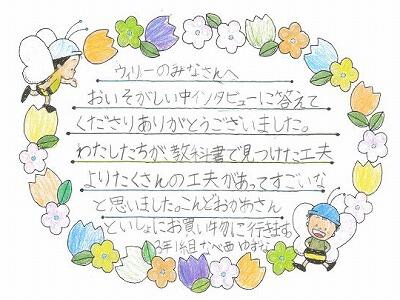 ウィリーのみなさんへ
おいそがしい中インタビューに答えて
くださりありがとうございました。
わたしたちが教科書で見つけた工夫
よりたくさんの工夫があってすごいな
と思いました。こんどおかあさん
といっしょにお買い物に行きます。
3年1組 なべ西 ゆずな